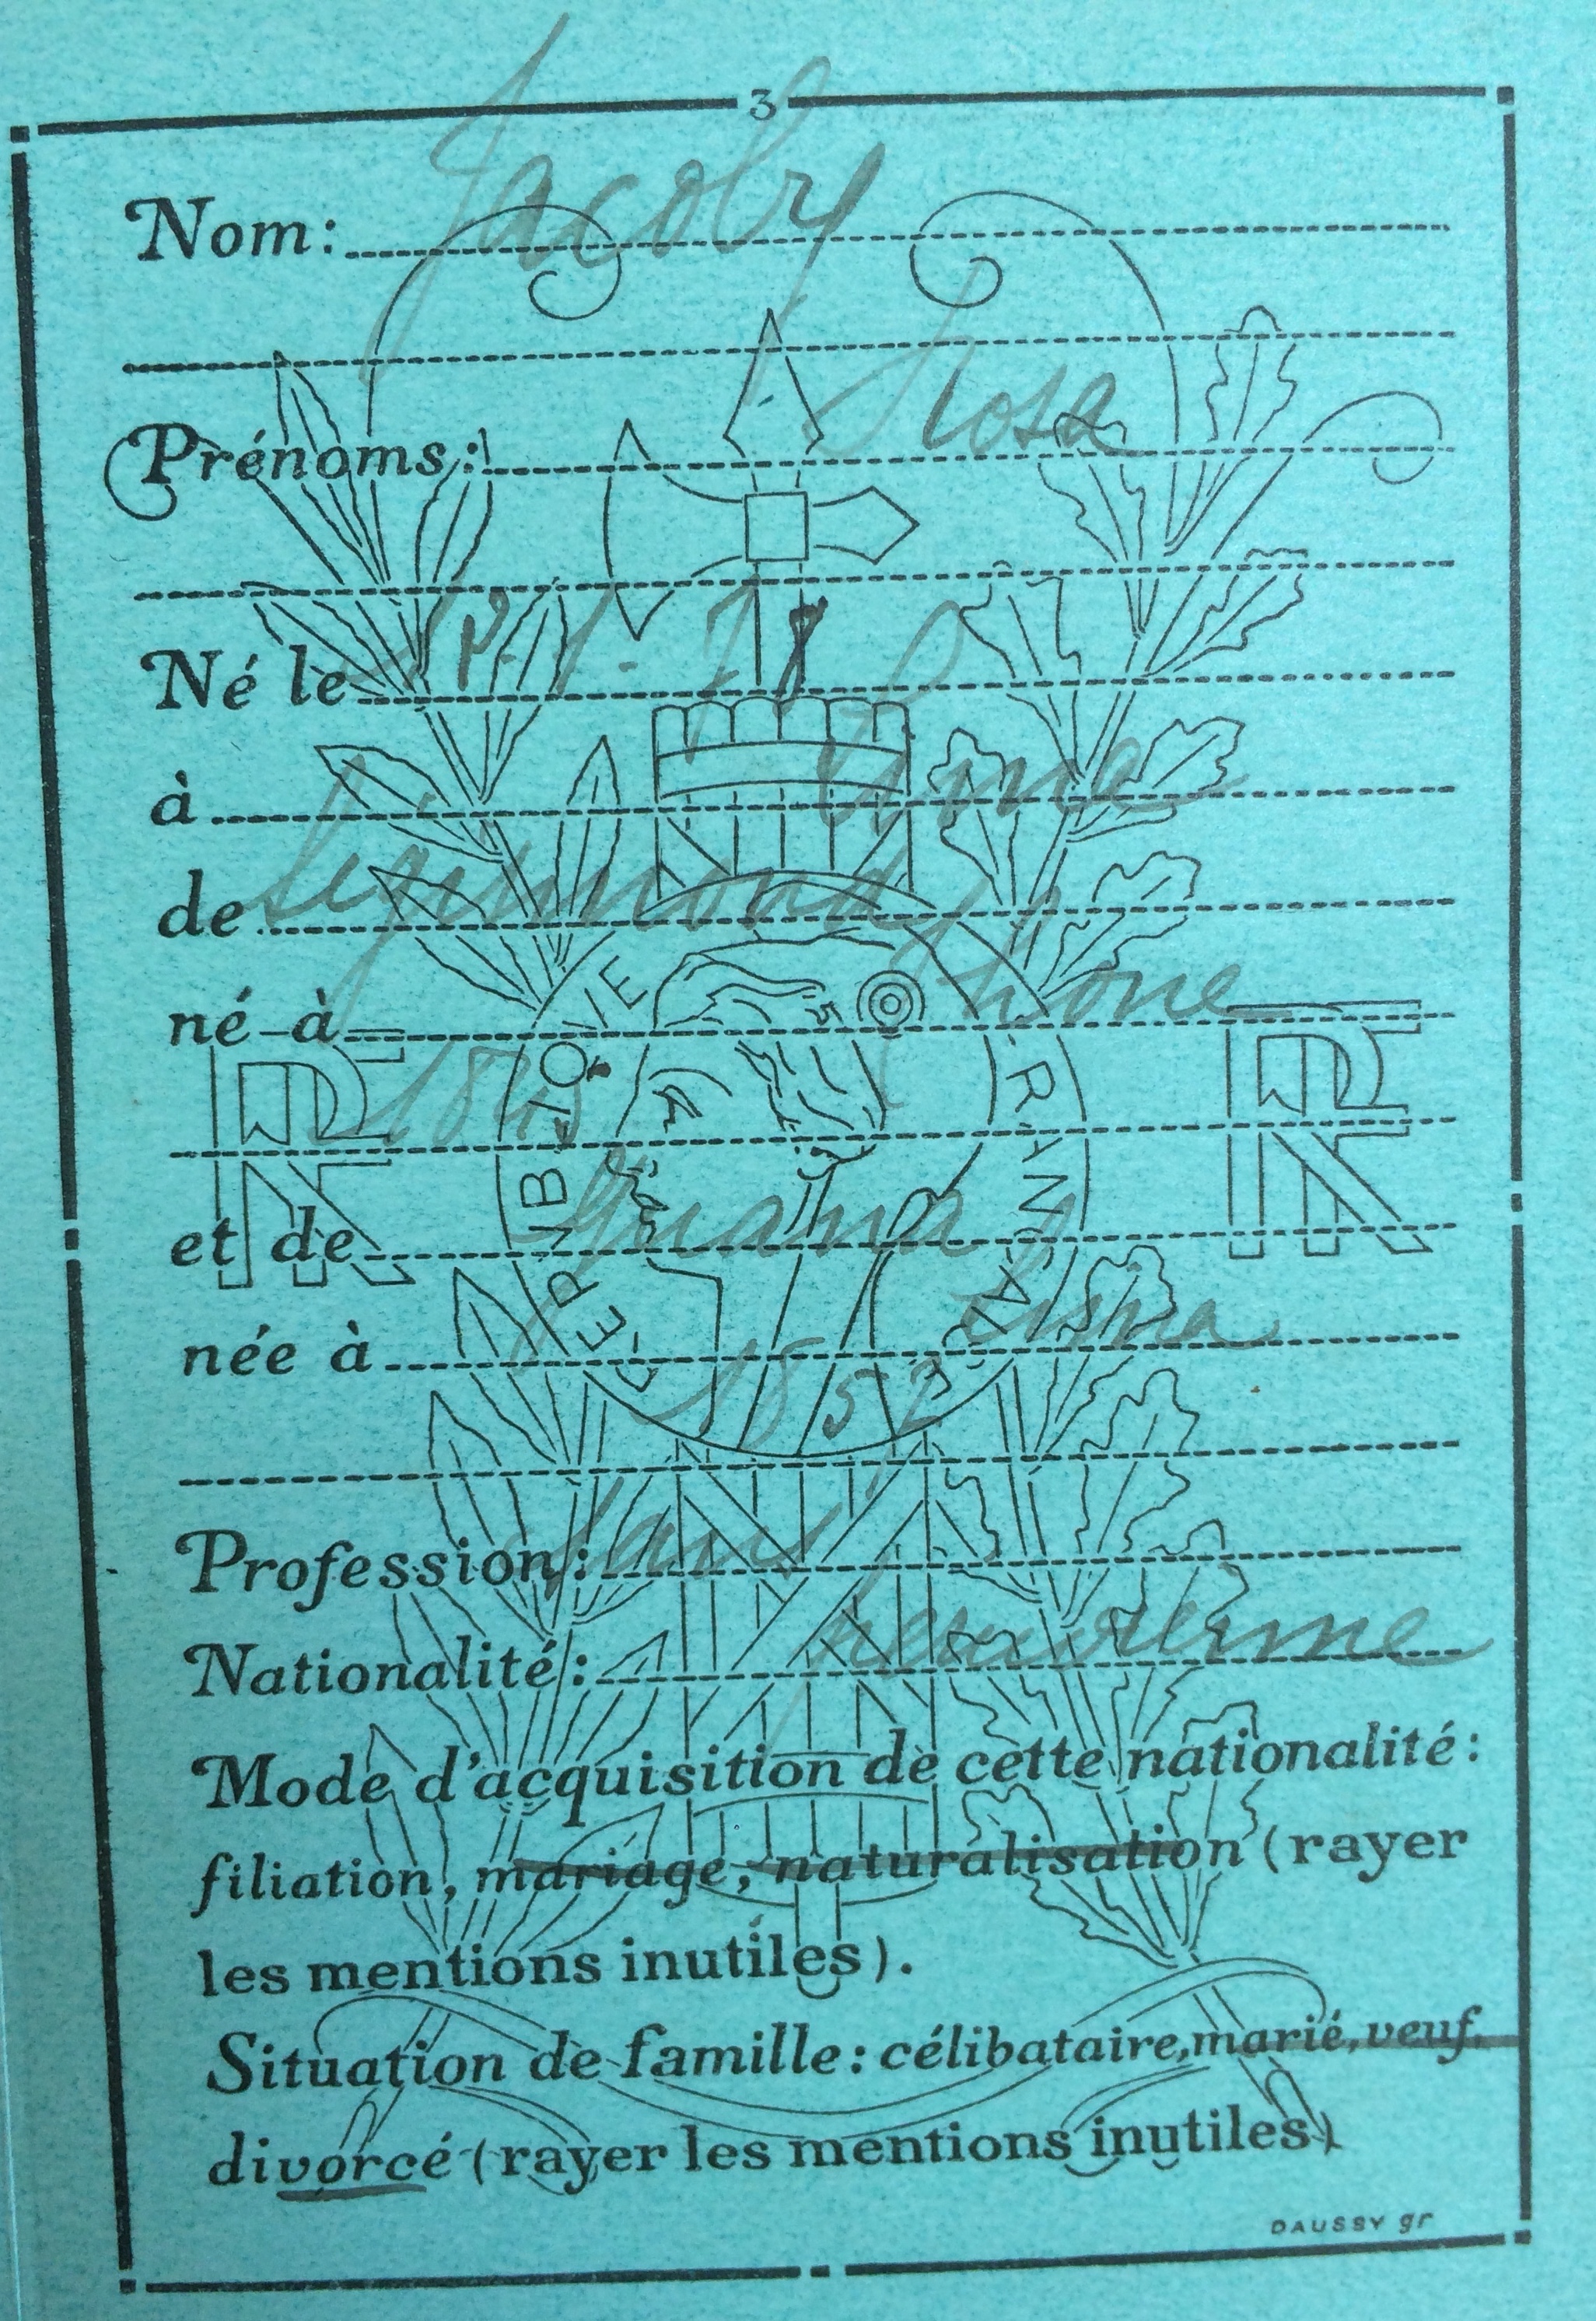 3
Nom: Jacoby
Prénoms: Rosa
Né le
à Lima
de
né à
184
et de
née à Lima
1852
Profession: sans
Nationalité: péruvienne
Mode d'acquisition de cette nationalité:
filiation, mariage, naturalisation (rayer
les mentions inutiles).
Situation de famille: célibataire, marié, veuf.
divorcé (rayer les mentions inutiles)
RF
RF
REPUBLIQUE FRANCAISE
DAUSSY gr